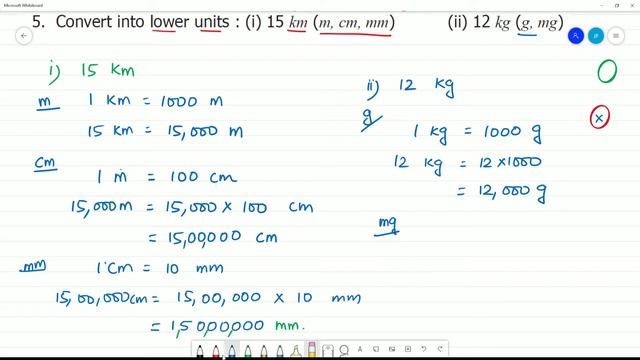 Microsoft Whiteboard
5. Convert into lower units : (i) 15 km (m, cm, mm) (ii) 12 kg (g, mg)
i) 15 Km
m 1 Km = 1000 m
15 Km = 15,000 m
cm
1 m = 100 cm
15,000m = 15,000 × 100 cm
= 15,00,000 cm
mm 1 cm = 10 mm
15,00,000cm = 15,00,000 × 10 mm
= 1,50,00,000 mm.
ii) 12 kg
g
1 kg = 1000 g
12 kg = 12 × 1000
= 12,000 g
mg